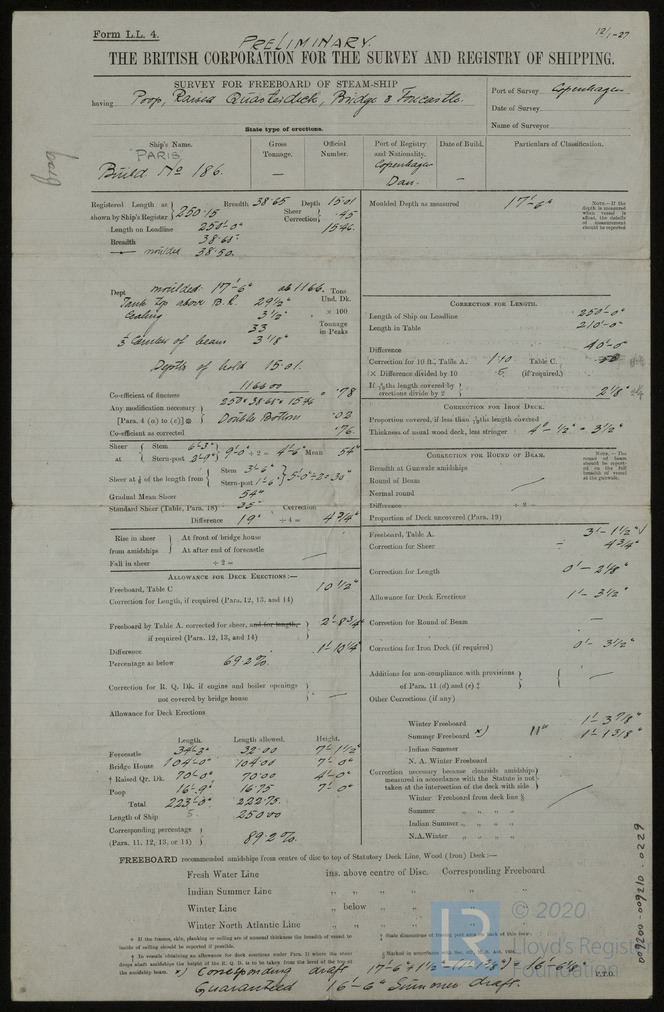 Form L.L. 4.
PRELIMINARY.
12/1-27
THE BRITISH CORPORATION FOR THE SURVEY AND REGISTRY OF SHIPPING.
SURVEY FOR FREEBOARD OF STEAM-SHIP
having Poop, Raised Quarterdeck, Bridge & Forecastle.
State type of erections.
Port of Survey Copenhagen
Date of Survey
Name of Surveyor
Ship's Name.
PARIS
Build No 186.
Gross Tonnage.
—
Official Number.
Port of Registry and Nationality.
Copenhagen
Dan.
Date of Build.
—
Particulars of Classification.
Registered Length as shown by Ship's Register } 250.15 Breadth 38.65 Depth 15.01
Sheer Correction } .45
Length on Loadline 250'-0" 15.46.
Breadth 38.65
moulded 38.50.
Moulded Depth as measured 17'-6"
NOTE.—If the depth is measured when vessel is afloat, the details of measurement should be reported
Dept moulded: 17'-6" 1166. Tons Und. Dk.
Tank Top above B.R. 29 1/2"
× 100
Ceiling 3 1/2"
33
Tonnage in Peaks
1/3 Camber of beam 3 1/8"
Depths of hold 15.01.
Co-efficient of fineness 116600 / 250 × 38.65 × 15.46 = .78
Any modification necessary [Para. 4 (a) to (e)] } Double Bottom .02
Co-efficient as corrected .76.
Sheer at { Stem 6'-3" Stern-post 2'-9" } 9'-0" ÷ 2 = 4'-6" Mean 54"
Sheer at 1/8 of the length from { Stem 3'-6" Stern-post 1'-6" } 5'-0" ÷ 2 = 30"
Gradual Mean Sheer 54"
Standard Sheer (Table, Para. 18) 35" Correction
Difference 19" ÷ 4 = 4 3/4"
Rise in sheer from amidships { At front of bridge house
At after end of forecastle
Fall in sheer ÷ 2 =
ALLOWANCE FOR DECK ERECTIONS:—
Freeboard, Table C 10 1/2"
Correction for Length, if required (Para. 12, 13, and 14)
Freeboard by Table A. corrected for sheer, and for length, if required (Para. 12, 13, and 14) } 2'-8 3/4"
Difference 1'-10 1/4"
Percentage as below 69.2%.
Correction for R. Q. Dk. if engine and boiler openings not covered by bridge house } —
Allowance for Deck Erections
Length. Length allowed. Height.
Forecastle 34'-3" 32.00 7'-1 1/2"
Bridge House 104'-0" 104.00 7'-0"
† Raised Qr. Dk. 70'-0" 70.00 4'-0"
Poop 16'-9" 16.75 7'-0"
Total 223'-0" 222.75.
Length of Ship 250.00
Corresponding percentage (Para. 11, 12, 13, or 14) } 89.2%.
CORRECTION FOR LENGTH.
Length of Ship on Loadline 250'-0"
Length in Table 210'-0"
Difference 40'-0
Correction for 10 ft., Table A. 1.10 Table C.
× Difference divided by 10 (if required.)
If 6/10ths length covered by erections divide by 2 } 2 1/8"
CORRECTION FOR IRON DECK.
Proportion covered, if less than 7/10ths length covered
Thickness of usual wood deck, less stringer 4" - 1/2" = 3 1/2"
CORRECTION FOR ROUND OF BEAM.
Breadth at Gunwale amidships
Round of Beam
Normal round
Difference ÷ 2 =
Proportion of Deck uncovered (Para. 19)
NOTE.—The round of beam should be reported on the full breadth of vessel at the gunwale.
Freeboard, Table A. 3'-1 1/2"
Correction for Sheer 4 3/4"
Correction for Length 0'-2 1/8"
Allowance for Deck Erections 1'-3 1/2"
Correction for Round of Beam —
Correction for Iron Deck (if required) 0'-3 1/2"
Additions for non-compliance with provisions of Para. 11 (d) and (e) ‡ } —
Other Corrections (if any)
Winter Freeboard 1'-3 7/8"
Summer Freeboard ×) 1'-1 3/8"
Indian Summer
N. A. Winter Freeboard
Correction necessary because clearside amidships measured in accordance with the Statute is not taken at the intersection of the deck with side }
Winter Freeboard from deck line §
Summer „ „ „
Indian Summer „ „ „
N.A. Winter „ „ „
FREEBOARD recommended amidships from centre of disc to top of Statutory Deck Line, Wood (Iron) Deck:—
Fresh Water Line ins. above centre of Disc. Corresponding Freeboard
Indian Summer Line „ „ „ „
Winter Line „ below „ „ „
Winter North Atlantic Line „ „ „ „
* If the frames, skin, planking or ceiling are of unusual thickness the breadth of vessel to inside of ceiling should be reported if possible.
×) Corresponding draft 17'-6" + 1 1/2" - 1'-1 3/8") = 16'-6 1/8"
Guaranteed 16'-6" Summer draft.
P.T.O.
© 2020
LR
Lloyd's Register Foundation
009200-009210-0229